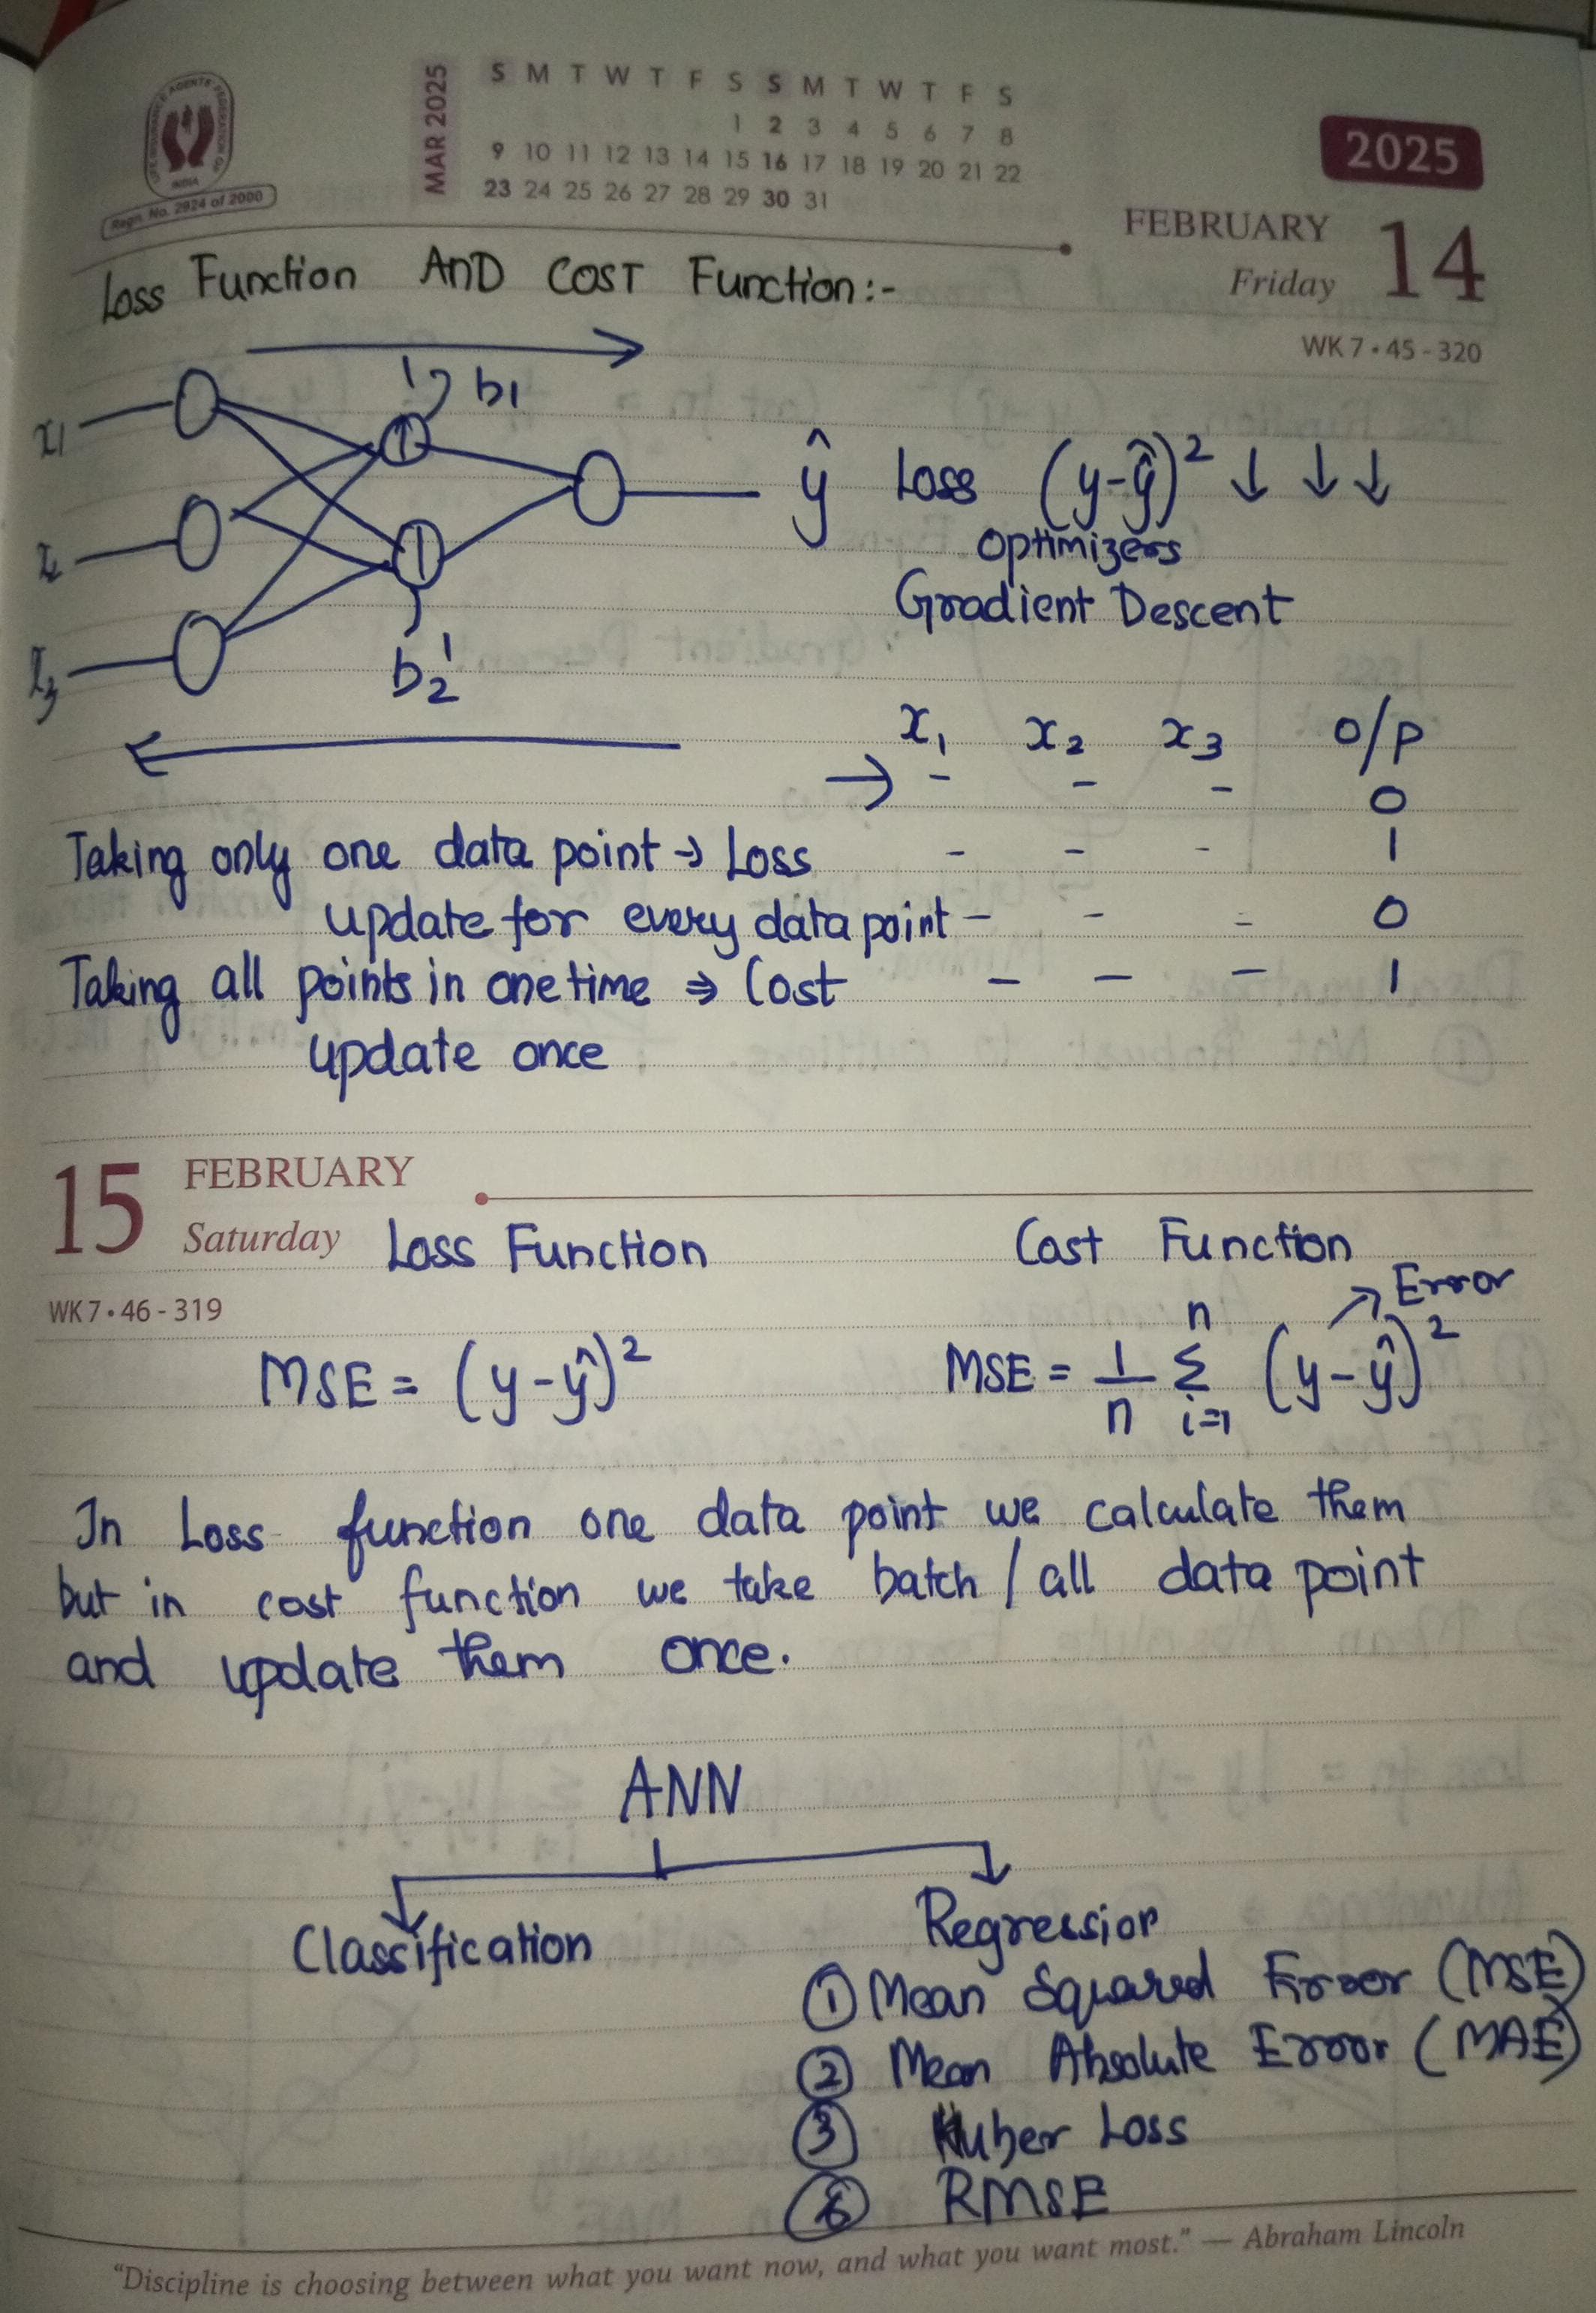 LIFE INSURANCE AGENTS FEDERATION OF INDIA
Regn. No. 2924 of 2000
MAR 2025
S M T W T F S S M T W T F S
1 2 3 4 5 6 7 8
9 10 11 12 13 14 15 16 17 18 19 20 21 22
23 24 25 26 27 28 29 30 31
2025
FEBRUARY 14
Friday
WK 7 • 45 - 320
Loss Function AND COST Function:-
b1
x1
ŷ Loss (y-ŷ)² ↓ ↓ ↓
optimizers
Gradient Descent
x3
b2'
x1 x2 x3 O/P
→ - - - 0
Taking only one data point → Loss - - - 1
update for every data point - - - 0
Taking all points in one time ⇒ Cost - - - 1
update once
15 FEBRUARY
Saturday
WK 7 • 46 - 319
Loss Function Cost Function
Error
MSE = (y-ŷ)² MSE = 1/n Σ i=1 n (y-ŷ)²
In Loss function one data point we calculate them
but in cost function we take batch / all data point
and update them once.
ANN
Classification Regression
① Mean Squared Error (MSE)
② Mean Absolute Error (MAE)
③ Huber Loss
RMSE
"Discipline is choosing between what you want now, and what you want most." — Abraham Lincoln